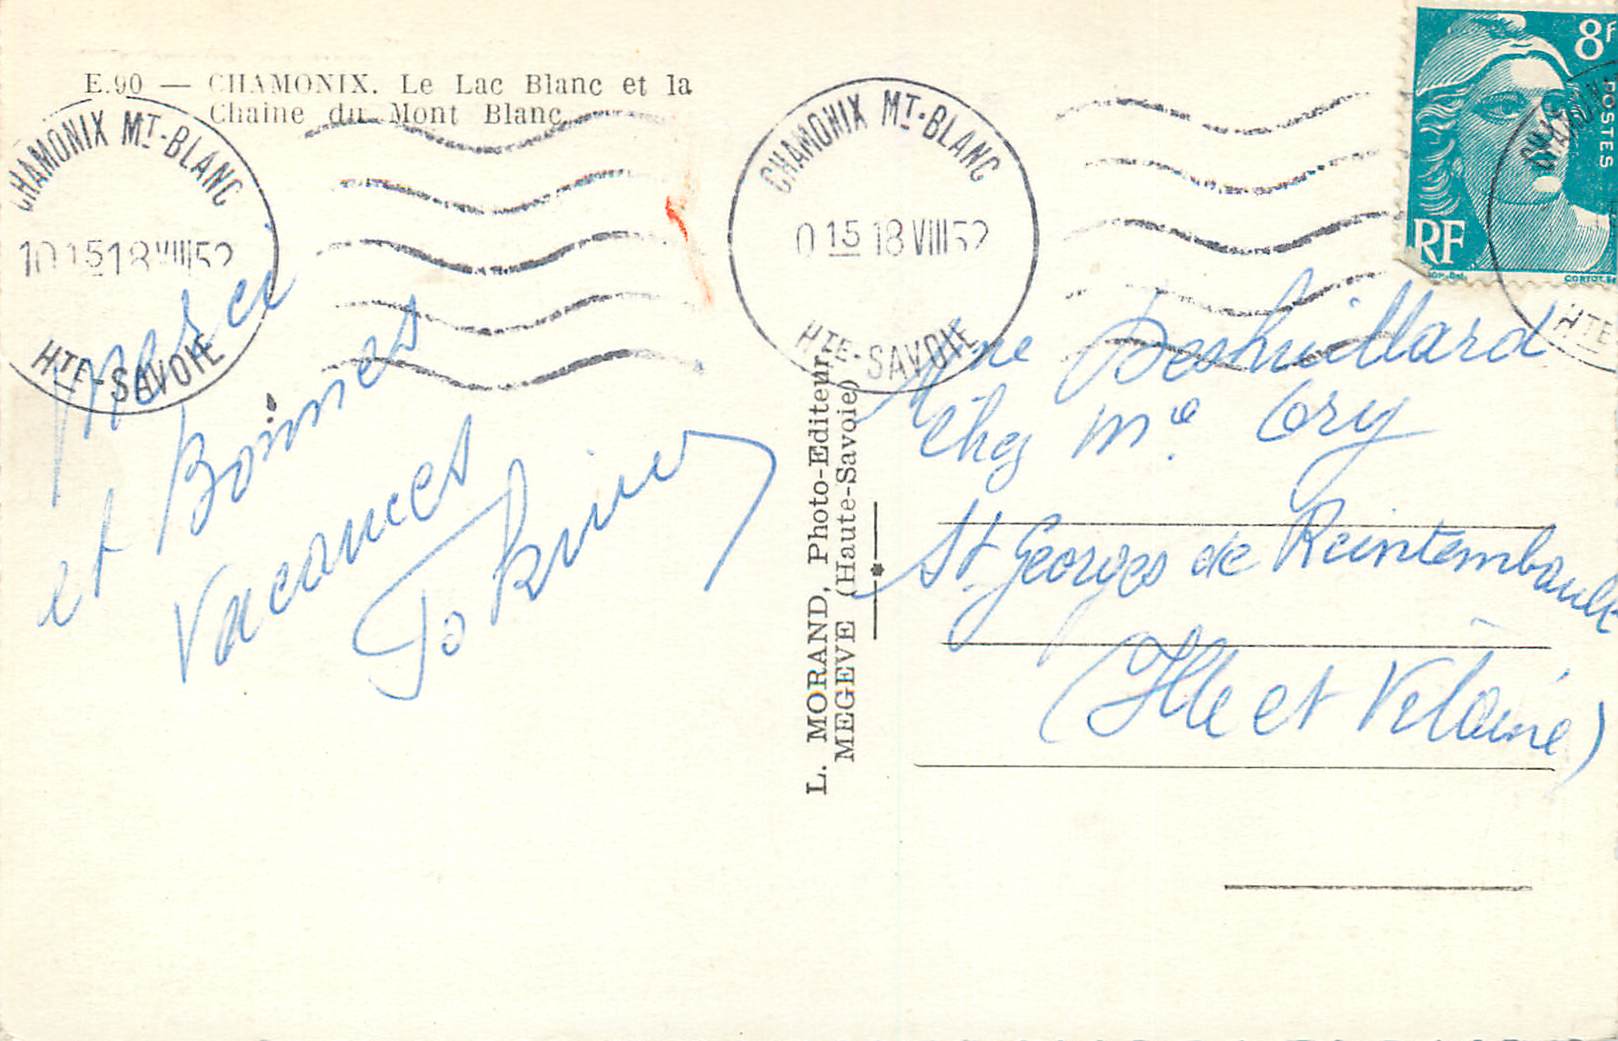 E.90 — CHAMONIX. Le Lac Blanc et la
Chaine du Mont Blanc.
CHAMONIX MT-BLANC
10 15 18 VIII 52
HTE-SAVOIE
CHAMONIX MT-BLANC
0 15 18 VIII 52
HTE-SAVOIE
8F
POSTES
RF
CORTOT
CHAMONIX
HTE
Merci
et Bonnes
Vacances
L. MORAND, Photo-Editeur,
MEGEVE (Haute-Savoie)
Mme Deshuillard
Chez Me Ory
St Georges de Reintembault
(Ille et Vilaine)